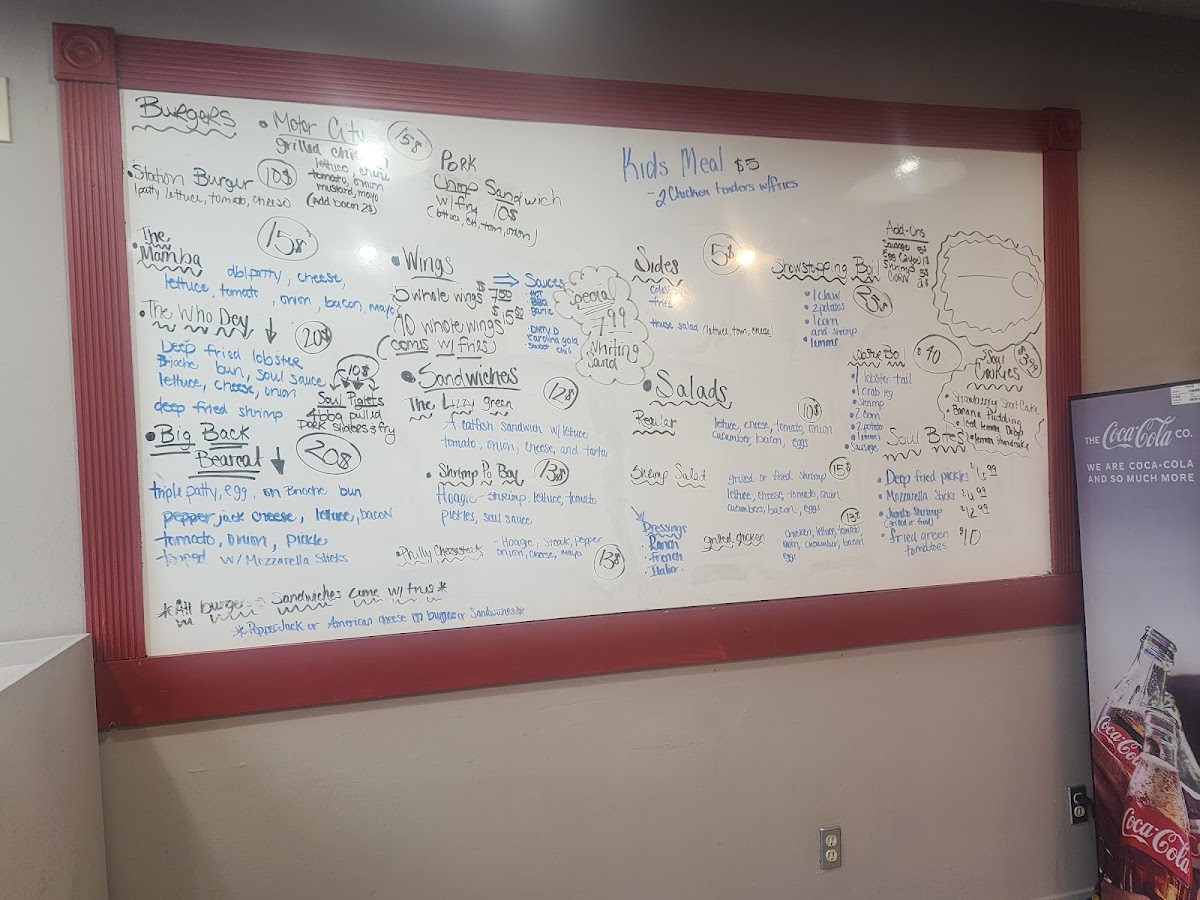 Burgers
• Motor City 15$
grilled
lettuce,
tomato, onion
mustard, mayo
(Add bacon 2$)
• Station Burger 10$
(patty lettuce, tomato, cheese)
Pork
Chop Sandwich
w/fry 10$
tom, onion)
Kids Meal $5
- 2 Chicken tenders w/fries
• The Mamba 15$
dbl patty, cheese,
lettuce, tomato, onion, bacon, mayo
• The Who Dey 20$
Deep fried lobster
Brioche bun, soul sauce
lettuce, cheese, onion
deep fried shrimp
10$
Soul Piglets
4 bbq pulled
pork sliders & fry
• Big Back
Bearcat 20$
triple patty, egg, on Brioche bun
pepper jack cheese, lettuce, bacon
tomato, onion, pickle
topped w/ Mozzarella Sticks
• Wings
5 whole wings $7.50
10 whole wings
(comes w/ fries)
Sauces
Hot
BBQ
Garlic
Carolina gold
Sweet Chili
Special
7.99
Whiting
• Sandwiches
The Lizzy green 12$
A catfish sandwich w/ lettuce
tomato, onion, cheese, and tartar
• Shrimp Po Boy 13$
Hoagie - shrimp, lettuce, tomato
pickles, soul sauce
• Philly Cheesesteak 13$
- Hoagie, Steak, pepper
onion, cheese, mayo
Sides 5$
fries
House salad (lettuce, tom, cheese)
• Salads
Regular 10$
lettuce, cheese, tomato, onion
cucumber, bacon, eggs
Shrimp Salad 15$
grilled or fried shrimp
lettuce, cheese, tomato, onion
cucumbers, bacon, eggs
grilled chicken 13$
chicken, lettuce, tomato,
onion, cucumber, bacon
eggs
Dressings
• Ranch
• French
• Italian
Showstopping Boil
• 1 claw
• 2 potatoes
• 1 corn
and shrimp
Add-Ons
Sausage
Shrimp 5$
Corn 2$
$40
• 1 lobster tail
• 1 crab leg
• Shrimp
• 2 corn
• 2 potato
• Sausage
Soul
Cookies
• Strawberry Short Cake
• Banana Pudding
• Iced lemon Drop
Soul Bites
• Deep fried pickles
• Mozzarella Sticks
• Jumbo Shrimp $12.99
(grilled or fried)
• fried green
tomatoes $10
*All burgers & Sandwiches come w/ fries*
*Pepper Jack or American cheese on burgers or Sandwiches*
THE Coca-Cola CO.
WE ARE COCA-COLA
AND SO MUCH MORE
Coca-Cola
Coca-Cola